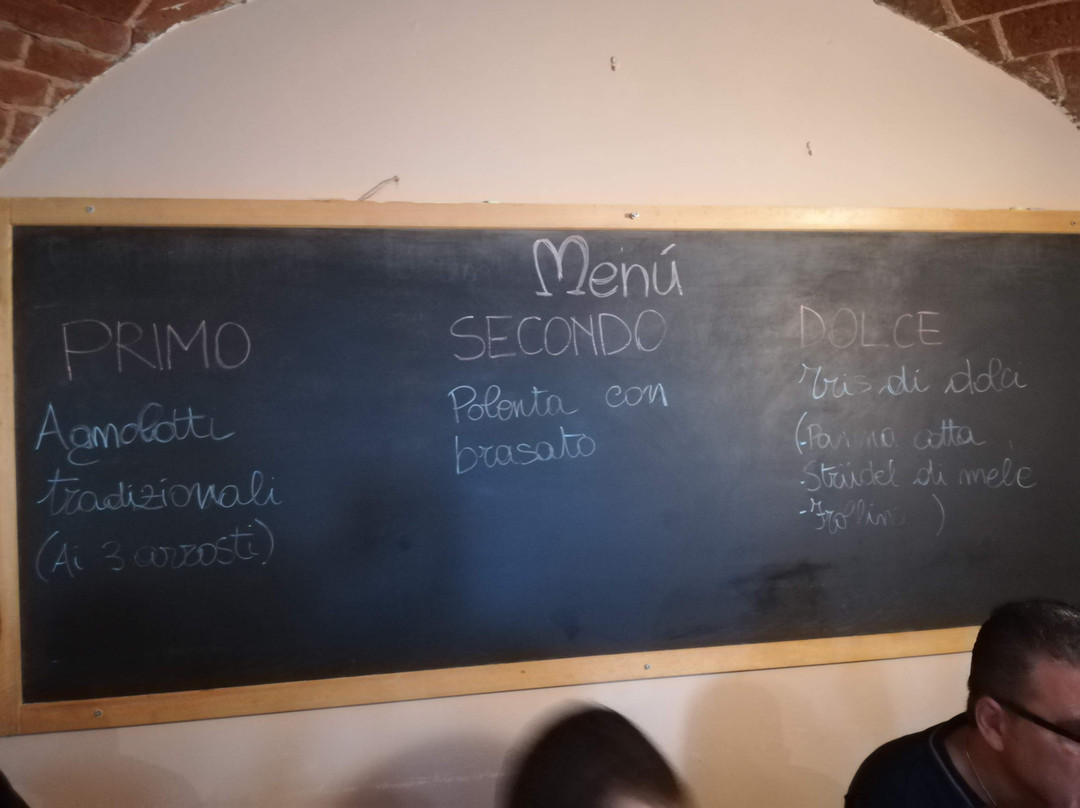 Menú
PRIMO
Agnolotti
tradizionali
(Ai 3 arrosti)
SECONDO
Polenta con
brasato
DOLCE
Tris di dolci
(-Panna cotta
-Strüdel di mele
-Frollini )